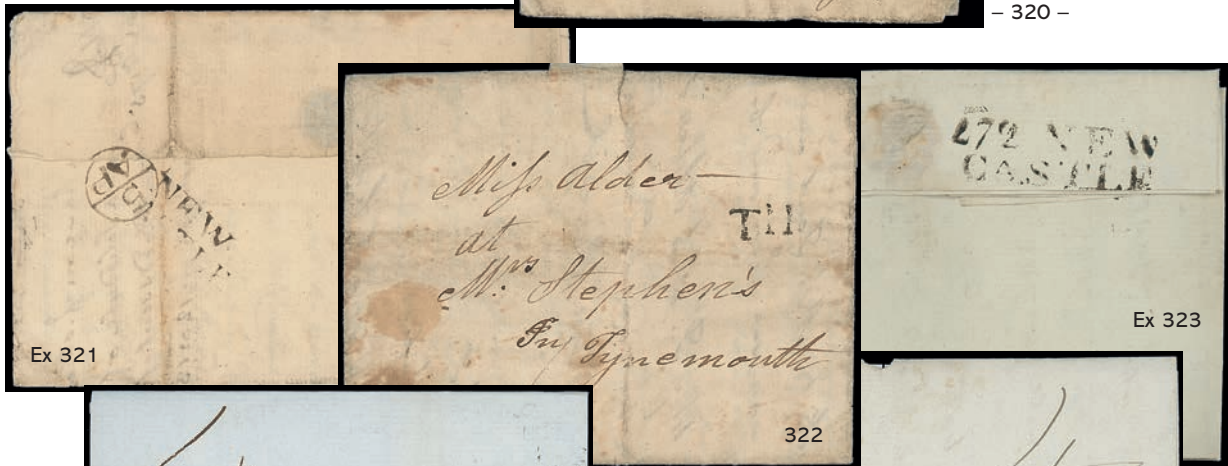 – 320 –
NEW
Ex 321
Miſs Alder
at
Mrs Stephen's
Tynemouth
322
272 NEW
CASTLE
Ex 323